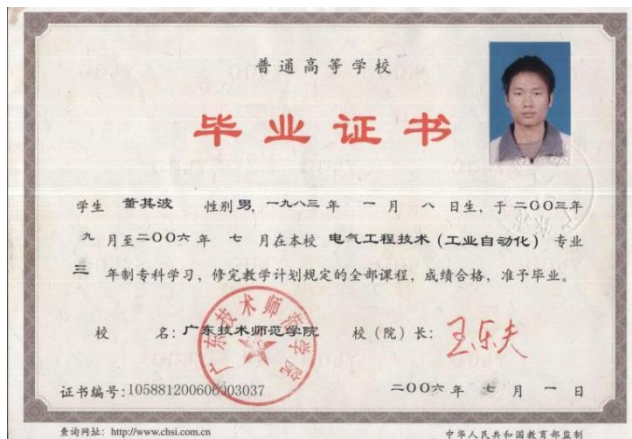 普通高等学校
毕业证书
学生 董其波 性别 男, 一九八三 年 一 月 八 日生, 于 二〇〇三年
九 月至 二〇〇六 年 七 月在本校 电气工程技术 (工业自动化) 专业
三 年制专科学习, 修完教学计划规定的全部课程, 成绩合格, 准予毕业。
校 名: 广东技术师范学院 校 (院) 长: 王乐夫
广东技术师范学院
证书编号: 105881200606003037 二〇〇六 年 七 月 一 日
查询网址: http://www.chsi.com.cn 中华人民共和国教育部监制